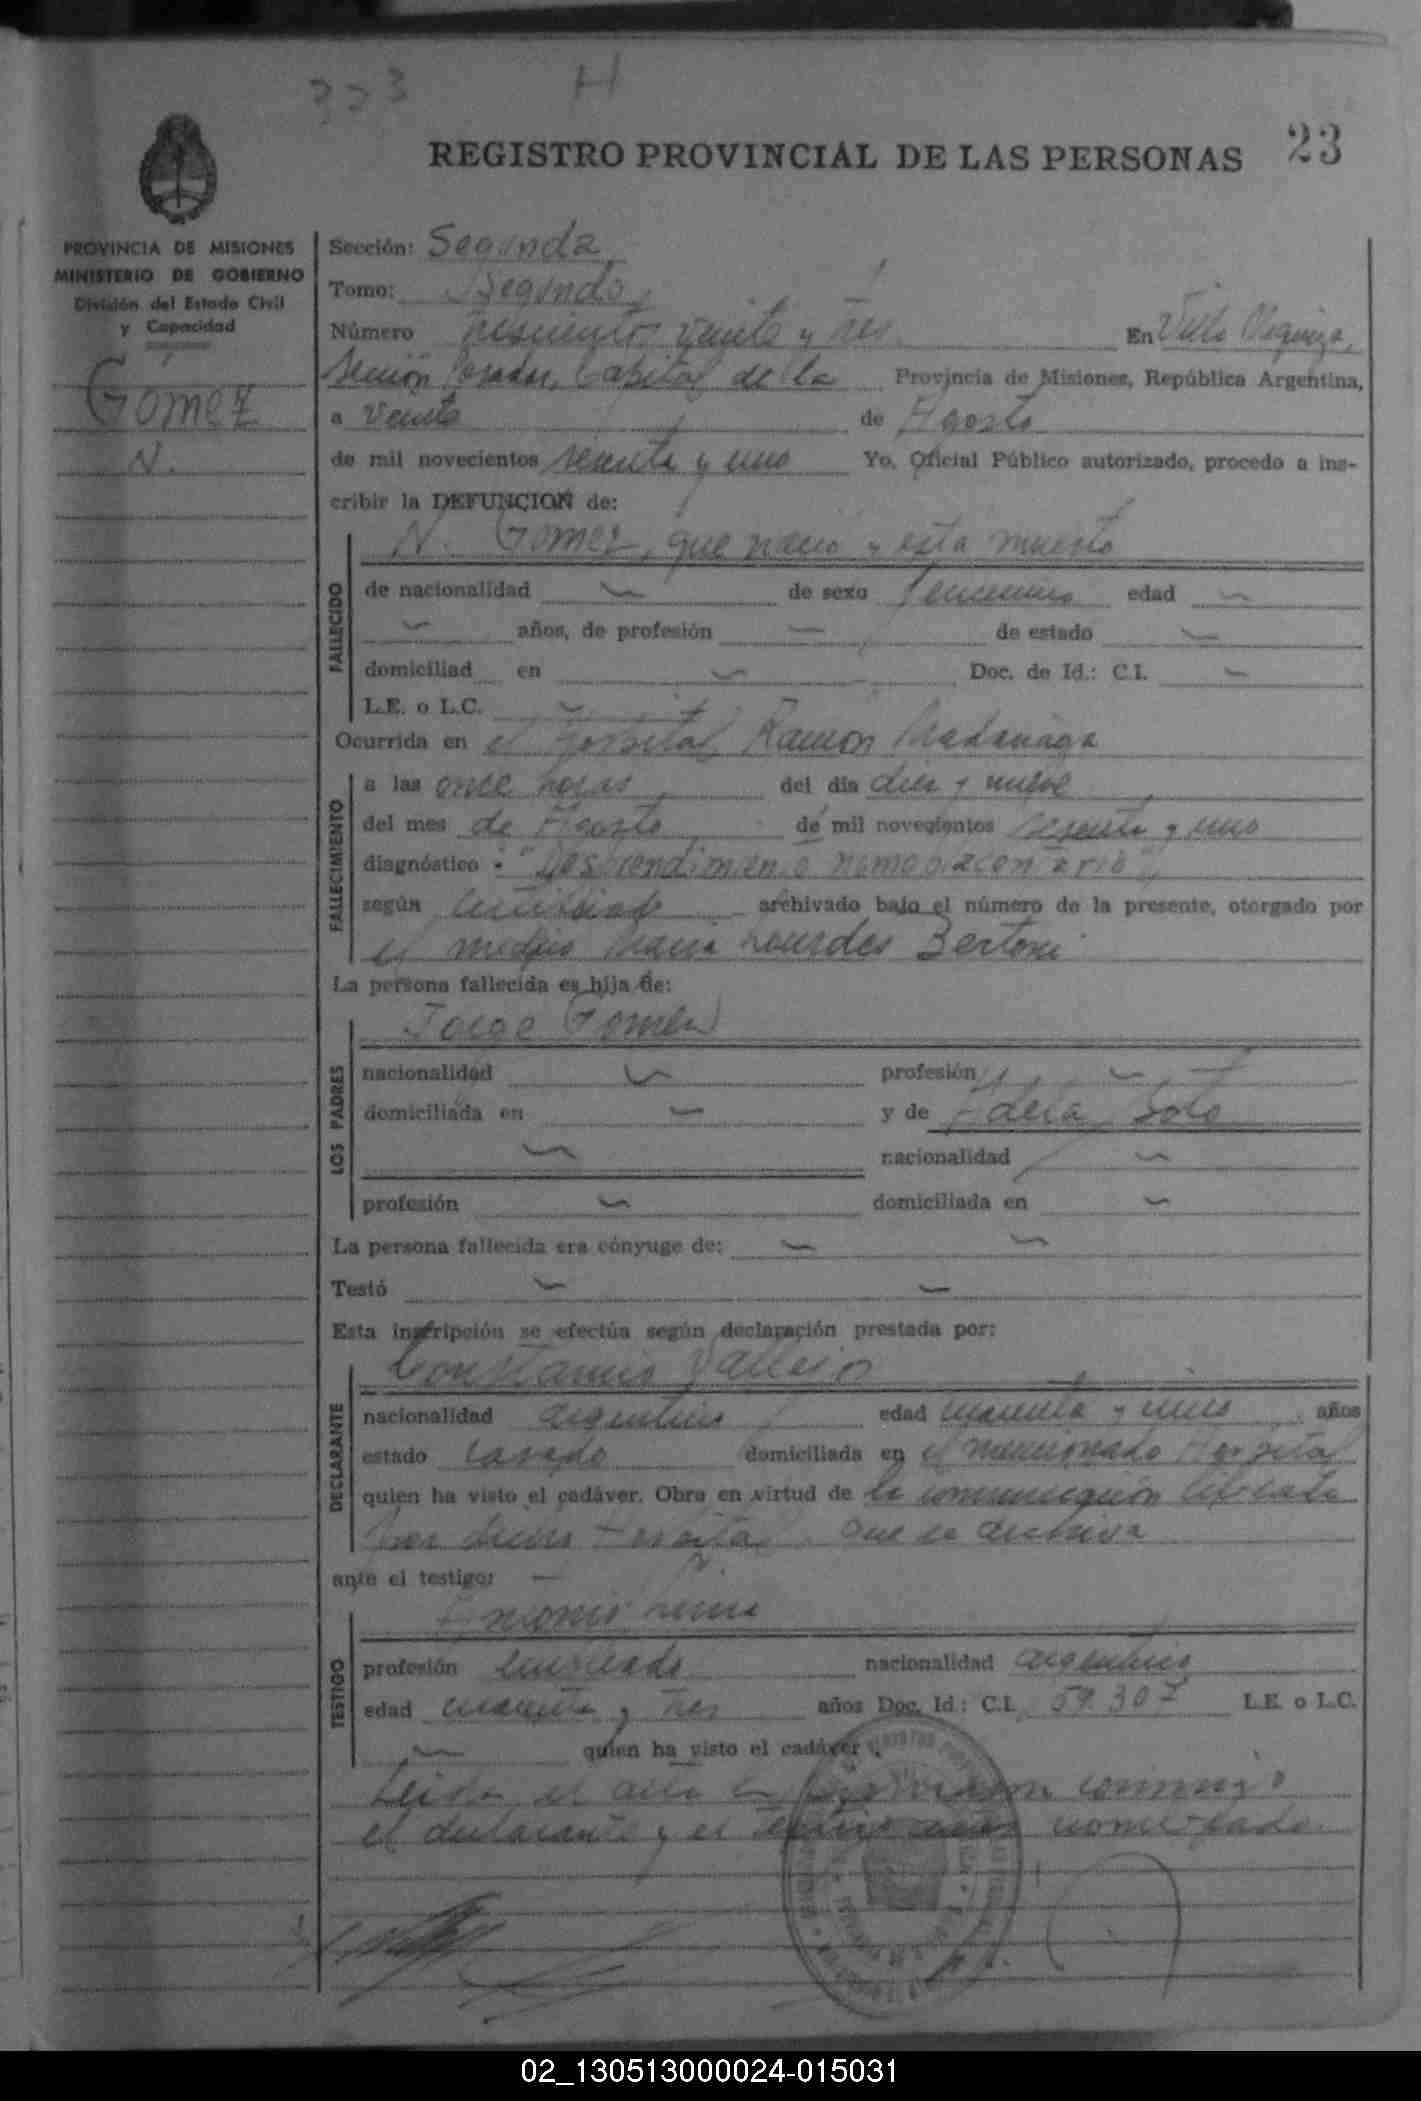 323 H
REGISTRO PROVINCIAL DE LAS PERSONAS 23
PROVINCIA DE MISIONES
MINISTERIO DE GOBIERNO
División del Estado Civil
y Capacidad
Gómez
N.
Sección: Segunda
Tomo: Segundo
Número Trescientos veinte y tres En Villa Urquiza,
Sección Posadas, Capital de la Provincia de Misiones, República Argentina,
a veinte de Agosto
de mil novecientos sesenta y uno Yo, Oficial Público autorizado, procedo a ins-
cribir la DEFUNCION de:
N. Gómez, que nació y esta muerto
FALLECIDO
de nacionalidad — de sexo femenino edad —
— años, de profesión — de estado —
domiciliad en — Doc. de Id.: C.I. —
L.E. o L.C. —
Ocurrida en el Hospital Ramón Madariaga
FALLECIMIENTO
a las once horas del día diez y nueve
del mes de Agosto de mil novecientos sesenta y uno
diagnóstico "Desprendimiento
según certificado archivado bajo el número de la presente, otorgado por
el médico María Lourdes Bertoni
La persona fallecida es hija de:
LOS PADRES
Jorge Gomez
nacionalidad — profesión —
domiciliada en — y de Soto
— nacionalidad —
profesión — domiciliada en —
La persona fallecida era cónyuge de: — —
Testó — —
Esta inscripción se efectúa según declaración prestada por:
DECLARANTE
Constancio Vallejo
nacionalidad argentino edad cuarenta y uno años
estado casado domiciliada en el mencionado Hospital
quien ha visto el cadáver. Obra en virtud de la comunicación
por dicho Hospital que se archiva
ante el testigo: —
TESTIGO
Antonio
profesión empleado nacionalidad argentino
edad cuarenta y tres años Doc. Id.: C.I. 59.307 L.E. o L.C.
— quien ha visto el cadáver.
Leida el acta la conmigo
el declarante y el testigo
02_130513000024-015031